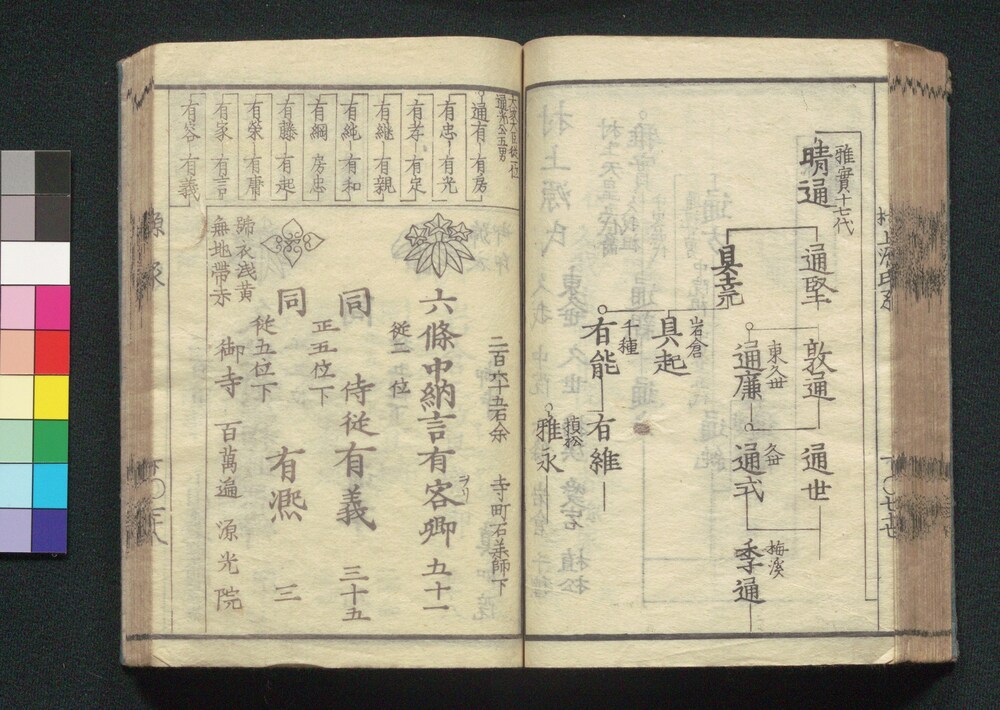 雅實十七代
晴通
通堅
具堯
敦通
東久世
通廉
岩倉
具起
千種
有能
通世
久世
通式
有維
植松
雅永
梅溪
季通
通有
有房
有忠
有光
有孝
有定
有継
有親
有純
有和
有綱
房忠
有藤
有起
有榮
有庸
有家
有言
有容
有義
二百六十五石余
寺町石薬師下
六條中納言有容卿
五十一
従二位
同
侍従有義
三十五
正五位下
同
有凞
三
従五位下
御寺
百萬遍
源光院
歸衣浅黄
無地帯赤